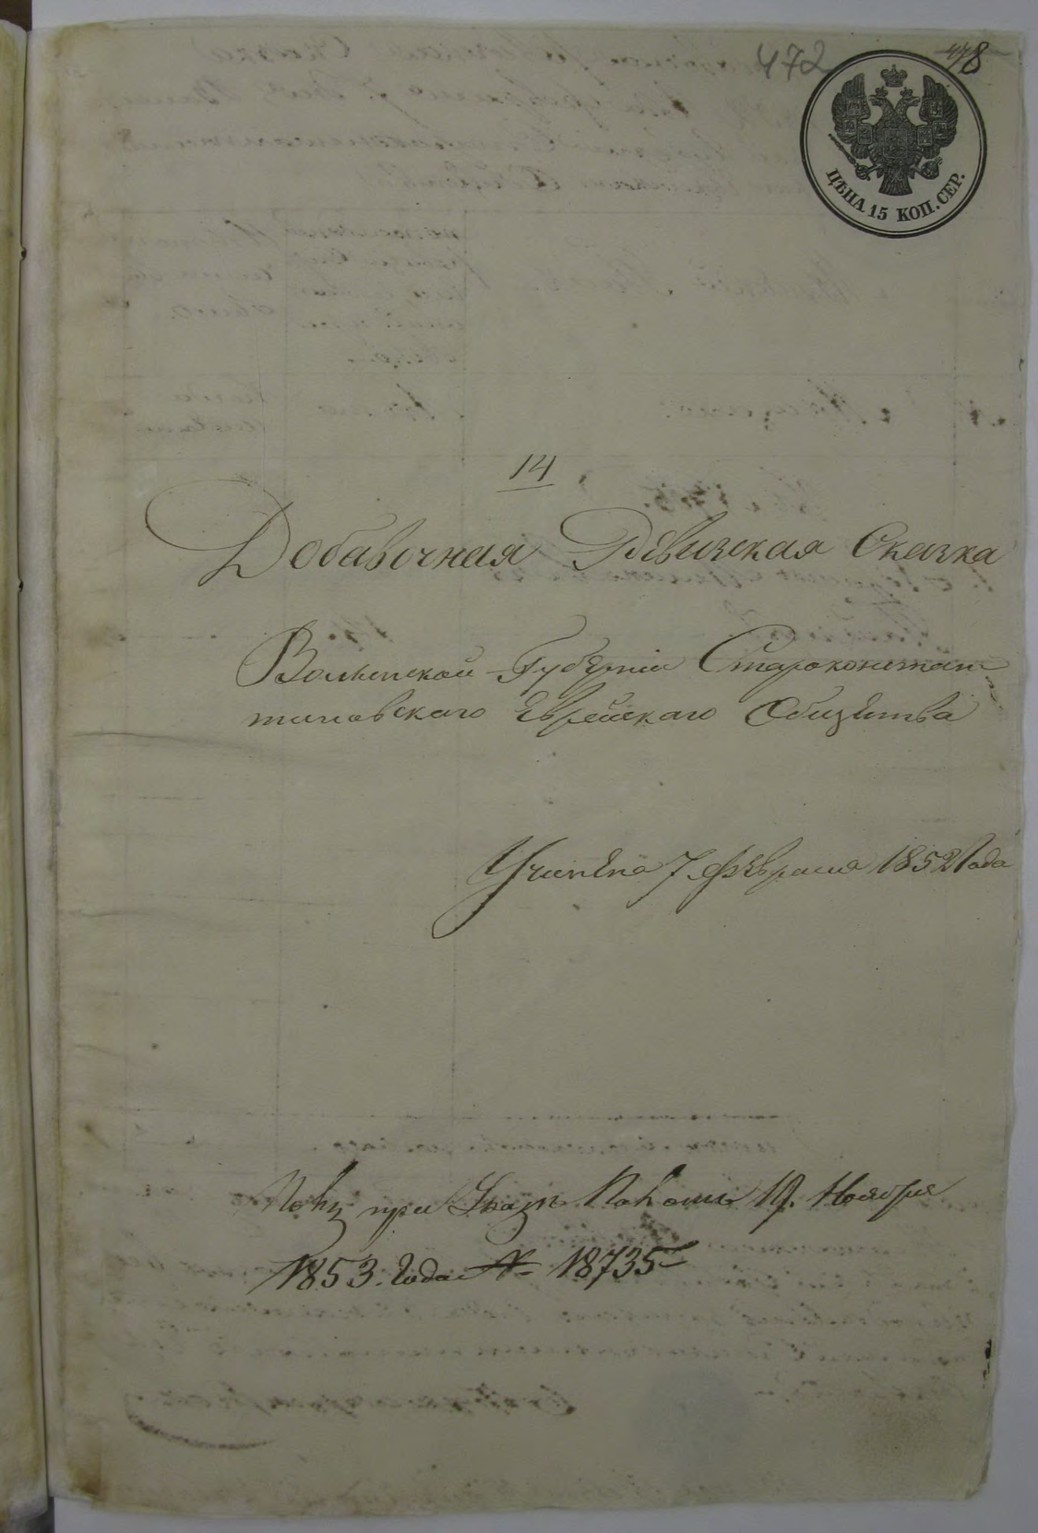 472
478
ЦѢНА 15 КОП. СЕР.
14
Добавочная Ревизская Сказка
Волынской Губерніи Староконстан
тиновскаго Еврейскаго Общества
Учинена 7 февраля 1852 Года
при Указе 19. Ноября
1853. Года № 18735